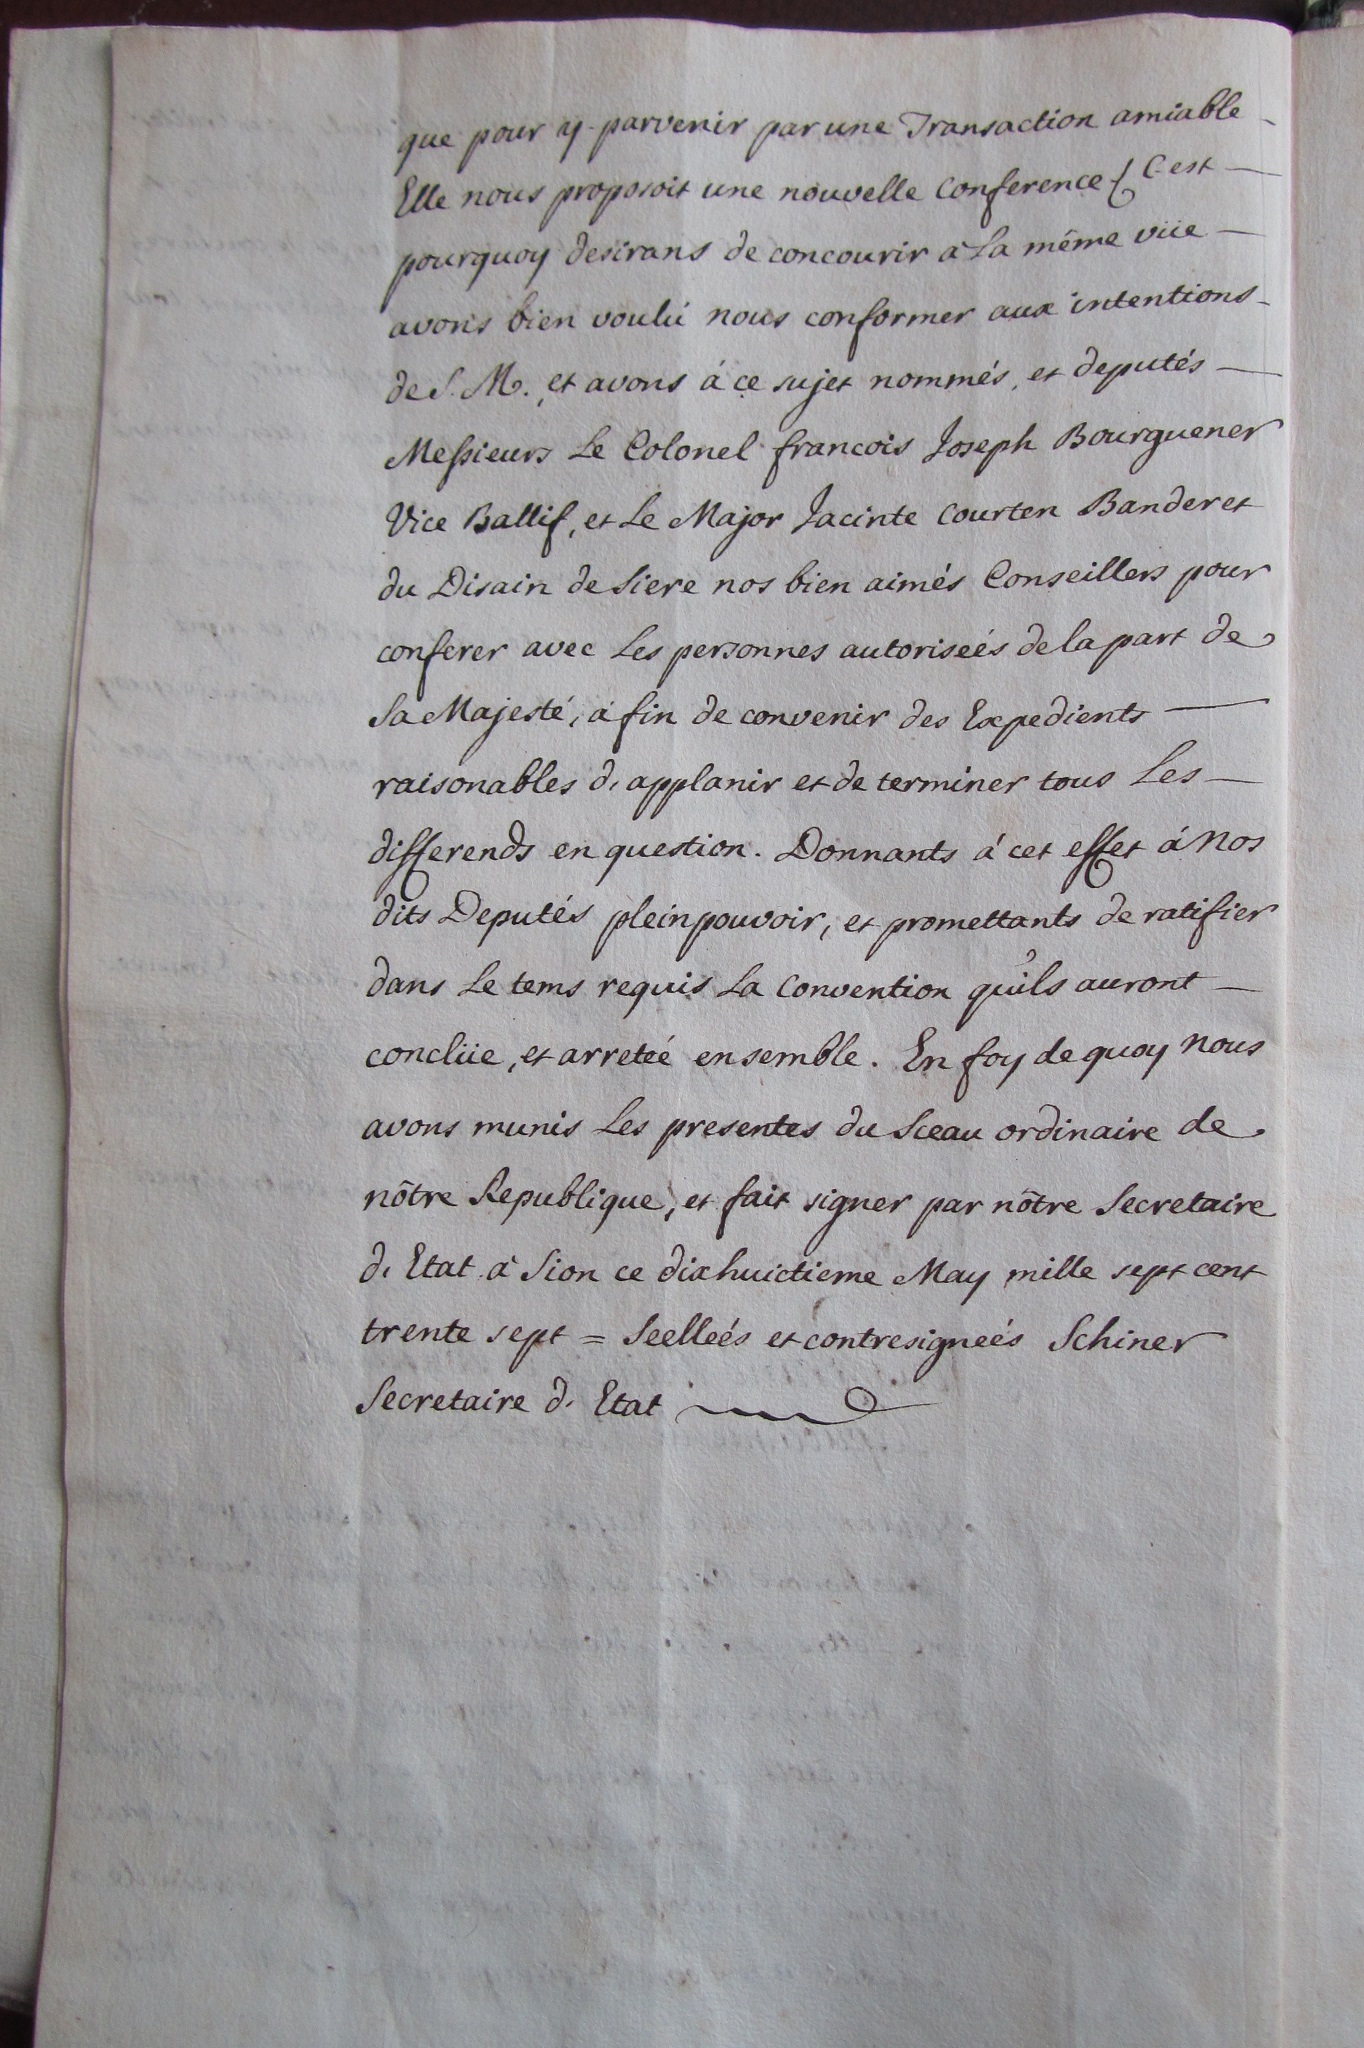 que pour y parvenir par une Transaction amiable
Elle nous proposoit une nouvelle Conference / C'est
pourquoy desirans de concourir à La même vüe
avons bien voulû nous conformer aux intentions
de S. M., et avons à ce sujet nommés, et deputés
Messieurs Le Colonel francois Joseph Bourguener
Vice Ballif, et Le Major Jacinte Courten Banderet
du Disain de Siere nos bien aimés Conseillers pour
conferer avec Les personnes autoriseés de la part de
Sa Majesté, à fin de convenir des Expedients
raisonables d'applanir et de terminer tous Les
differends en question. Donnants à cet effet à Nos
dits Deputés plein pouvoir, et promettants de ratifier
dans Le tems requis La Convention qu'ils auront
conclüe, et arreteé ensemble. En foy de quoy Nous
avons munis Les presentes du Sceau ordinaire de
nôtre Republique, et fait signer par nôtre Secretaire
d'Etat à Sion ce dixhuictieme May mille sept cent
trente sept = Seelleés et contresigneés Schiner
Secretaire d'Etat